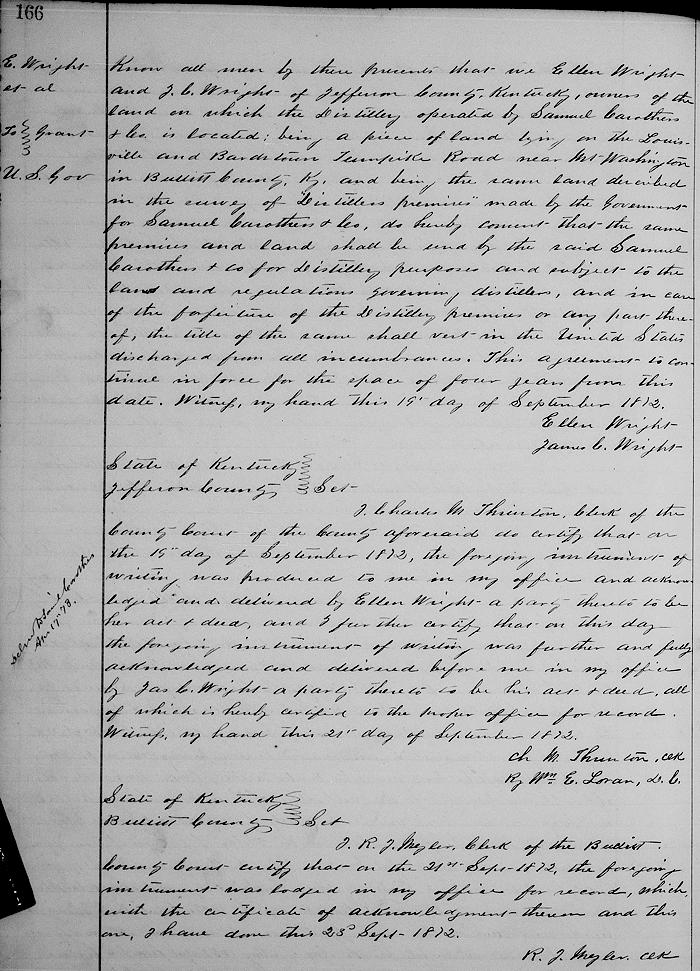 166
E. Wright
et al
To Grant
U. S. Gov
Know all men by these presents that we Ellen Wright
and J. C. Wright of Jefferson County, Kentucky, owners of the
land on which the Distillery operated by Samuel Carothers
& Co. is located; being a piece of land lying on the Louis-
ville and Bardstown Turnpike Road near Mt Washington
in Bullitt County, Ky. and being the same land described
in the survey of "Distillers premises" made by the Government
for Samuel Carothers & Co, do hereby consent that the same
premises and land shall be used by the said Samuel
Carothers & Co for Distillery purposes and subject to the
laws and regulations governing distillers, and in case
of the forfeiture of the Distillery premises or any part there-
of, the title of the same shall vest in the United States
discharged from all incumbrances. This agreement to con-
tinue in force for the space of four years from this
date. Witness, my hand this 19" day of September 1872.
Ellen Wright
James C. Wright
State of Kentucky
Jefferson County Sct
I, Charles M. Thruston, Clerk of the
County Court of the County aforesaid do certify that on
the 19" day of September 1872, the foregoing instrument of
writing was produced to me in my office and acknow-
ledged and delivered by Ellen Wright a party thereto to be
her act & deed, and I further certify that on this day
the foregoing instrument of writing was further and fully
acknowledged and delivered before me in my office
by Jas C. Wright a party thereto to be his act & deed, all
of which is hereby certified to the proper office for record.
Witness, my hand this 21st day of September 1872.
Ch M. Thruston, clk
By Wm. E. Loran, D. C.
Delvd to Saml Carothers
Apr 17" 73.
State of Kentucky
Bullitt County Sct
I, R. J. Meyler, Clerk of the Bullitt
County Court certify that on the 21st Sept 1872, the foregoing
instrument was lodged in my office for record, which,
with the certificate of acknowledgment thereon and this
one, I have done this 23d Sept. 1872.
R. J. Meyler, clk